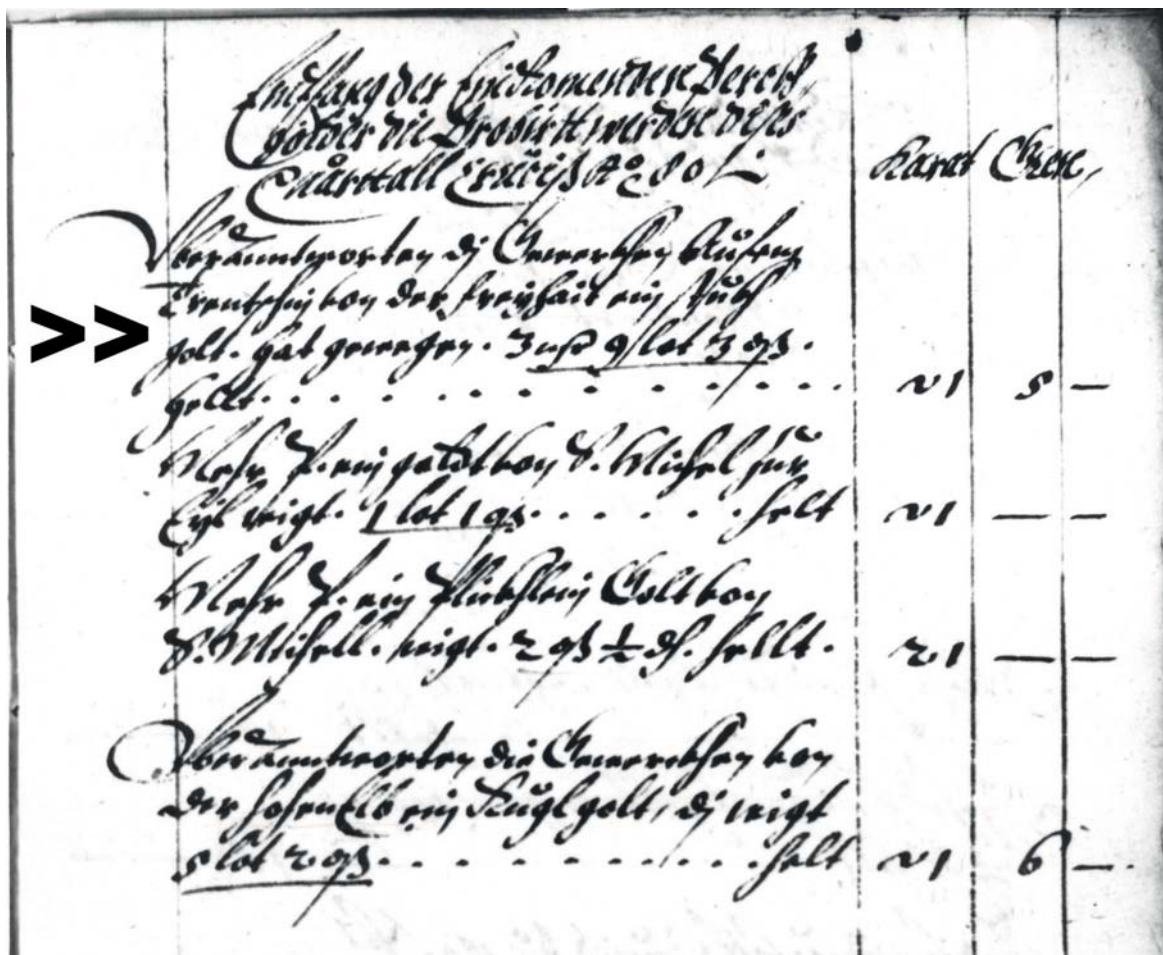 Empfang der Einkomenden Perckh
golder die Probirtt werden dises
Quartall Crucis Aº 80
Karat Gren,
Uberanntworten di Gewerkhen
von der Freyhait ein stukh
golt. hat gewegen. 3 9 lot 3 q.
hellt. . . . . . . . . . . . 21 5 —
Mehr ein goldt von S. Michel zur
Eyl wigt. 1 lot 1 q. . . . . . helt 21 — —
Mehr ein stückhlein Golt von
S. Michell. wigt. 2 q ½ d. hellt. 21 — —
Uberanntworten die Gewerckhen von
der hohen Elb ein Kugl golt, di wigt
5 lot 2 q. . . . . . . . . . helt 21 6 —
>>